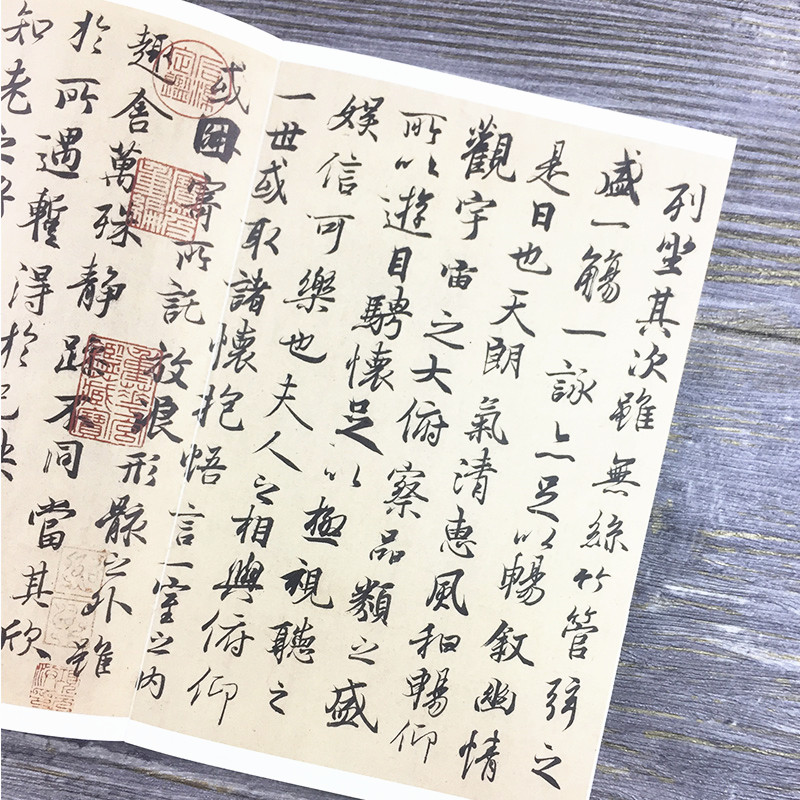 列坐其次雖無絲竹管弦之
盛一觴一詠亦足以暢叙幽情
是日也天朗氣清惠風和暢仰
觀宇宙之大俯察品類之盛
所以遊目騁懷足以極視聽之
娛信可樂也夫人之相與俯仰
一世或取諸懷抱悟言一室之內
或因寄所託放浪形骸之外雖
趣舍萬殊靜躁不同當其欣
於所遇蹔得於己快
知老之將